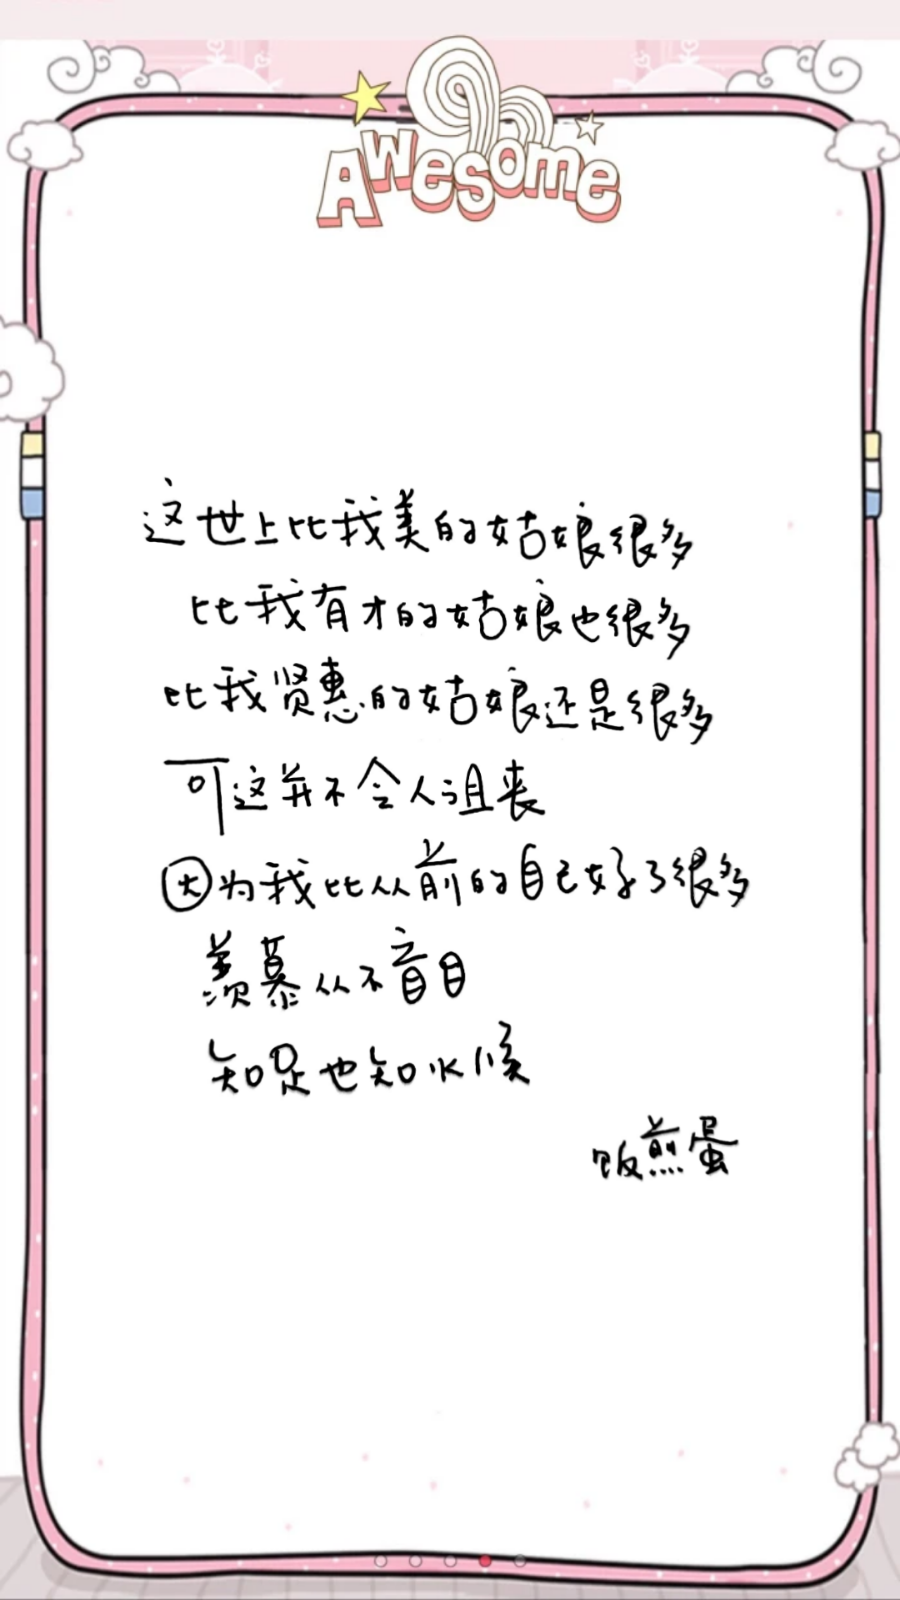 Awesome
这世上比我美的姑娘很多
比我有才的姑娘也很多
比我贤惠的姑娘还是很多
可这并不令人沮丧
因为我比从前的自己好了很多
羡慕从不盲目
知足也知火候
饭煎蛋